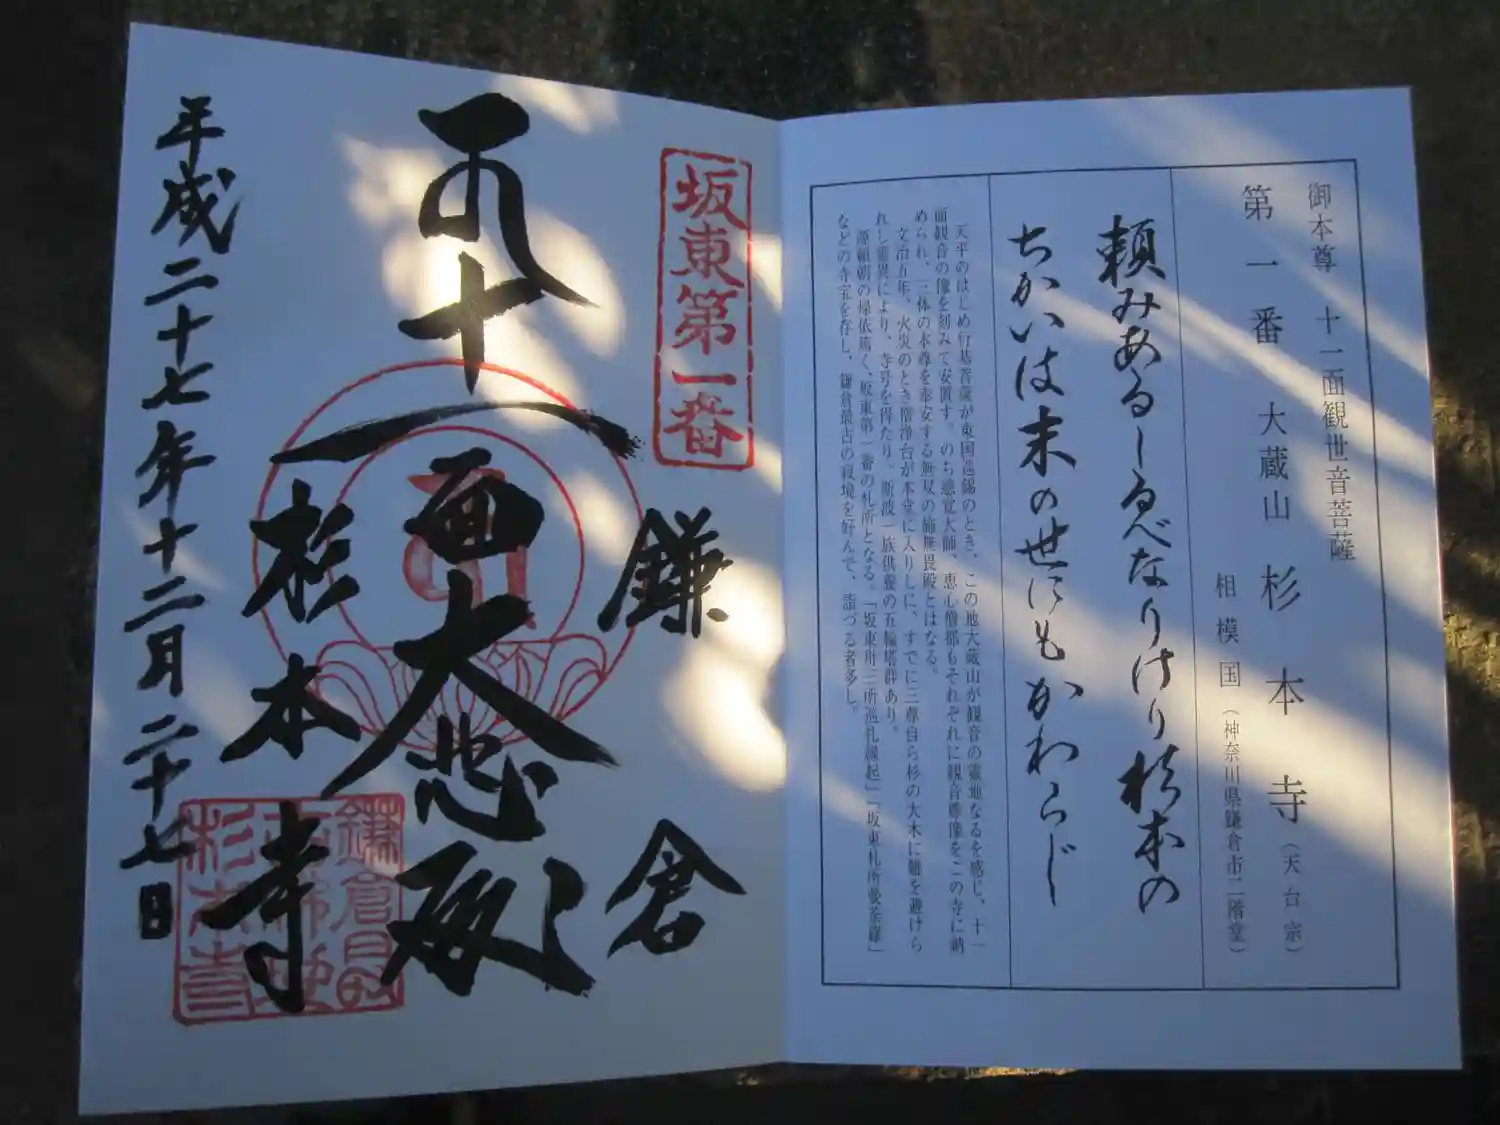 御本尊　十一面観世音菩薩
第一番　大蔵山　杉本寺（天台宗）
相模国（神奈川県鎌倉市二階堂）
頼みあるしるべなりけり杉本の
ちかいは末の世にもかわらじ
天平のはじめ行基菩薩が東国巡錫のとき、この地大蔵山が観音の霊地なるを感じ、十一
面観音の像を刻みて安置す。のち慈覚大師、恵心僧都もそれぞれに観音尊像をこの寺に納
められ、三体の本尊を奉安する無双の施無畏殿とはなる。
文治五年、火災のとき僧浄台が本堂に入りしに、すでに三尊自ら杉の大木に難を避けら
れし霊異により、寺号を得たり。斯波一族供養の五輪塔群あり。
源頼朝の帰依篤く、坂東第一番の札所となる。「坂東卅三所巡礼縁起」「坂東札所曼荼羅」
などの寺宝を存し、鎌倉最古の寂境を好んで、詣づる者多し。
坂東第一番
鎌倉
十一面大悲殿
杉本寺
平成二十七年十二月二十七日